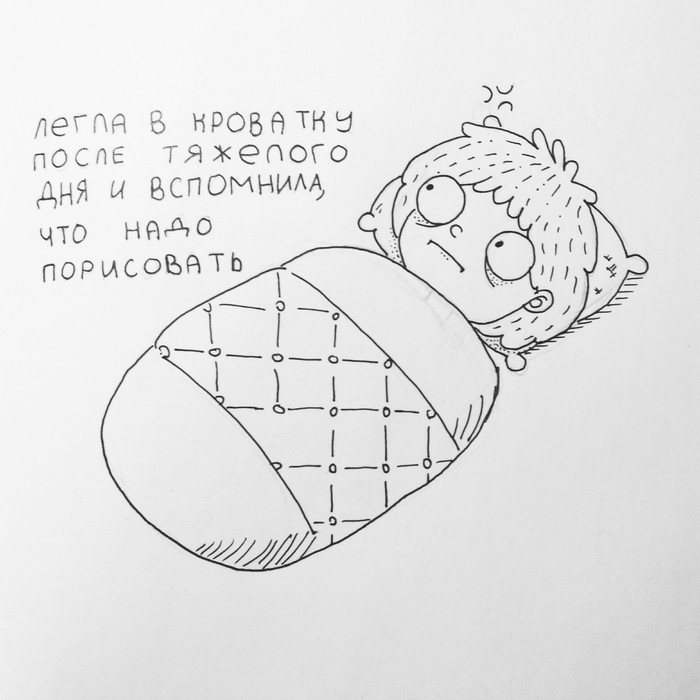 легла в кроватку
после тяжелого
дня и вспомнила,
что надо
порисовать